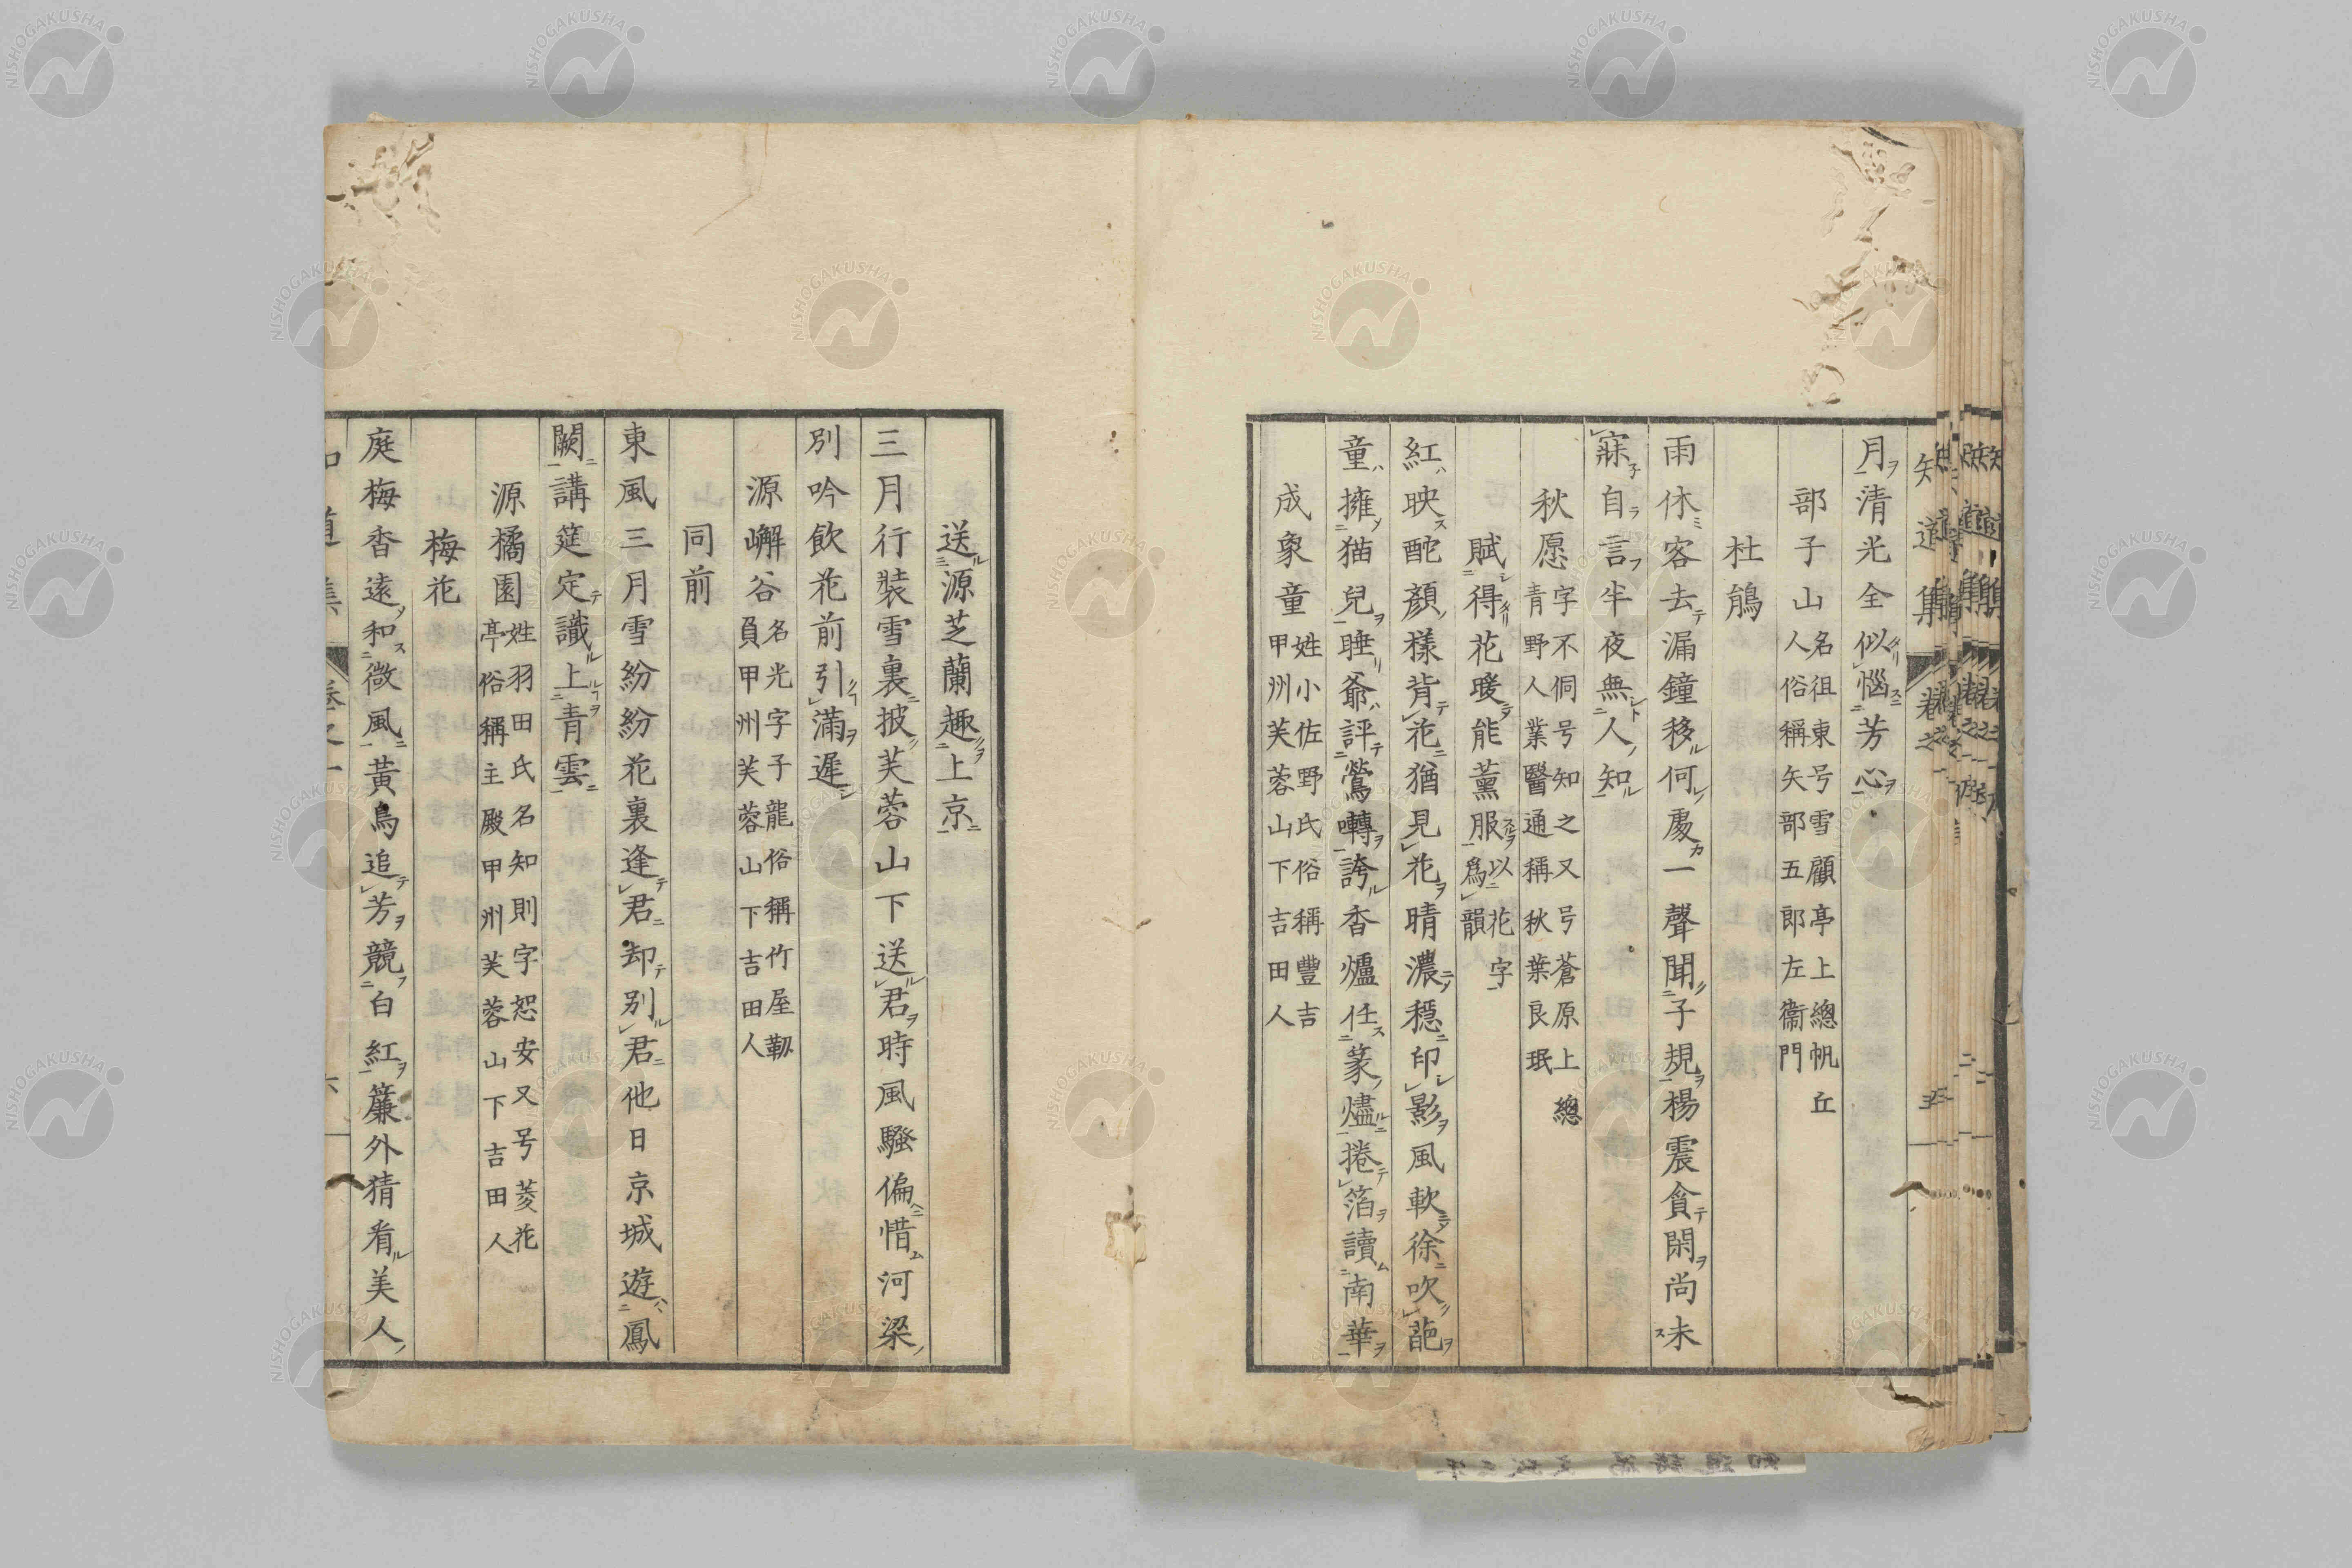 月清光全似惱芳心
部子山名徂東号雪顧亭上總帆丘
人俗稱矢部五郎左衞門
杜鵑
雨休客去漏鐘移何處一聲聞子規楊震貪閑尚未
寐自言半夜無人知
秋愿字不侗号知之又号蒼原上總
青野人業醫通稱秋葉良珉
賦得花暖能薰服以花字
爲韻
紅映酡顏樣背花猶見花晴濃穩印影風軟徐吹葩
童擁猫兒睡爺評鶯囀誇香爐任篆燼捲箔讀南華
成象童姓小佐野氏俗稱豐吉
甲州芙蓉山下吉田人
送源芝蘭趣上京
三月行裝雪裏披芙蓉山下送君時風騷偏惜河梁
別吟飲花前引滿遲
源嶰谷名光字子龍俗稱竹屋靱
負甲州芙蓉山下吉田人
同前
東風三月雪紛紛花裏逢君却別君他日京城遊鳳
闕講筵定識上青雲
源橘園姓羽田氏名知則字恕安又号菱花
亭俗稱主殿甲州芙蓉山下吉田人
梅花
庭梅香遠和微風黃鳥追芳競白紅簾外猜看美人
知道集
NISHOGAKUSHA